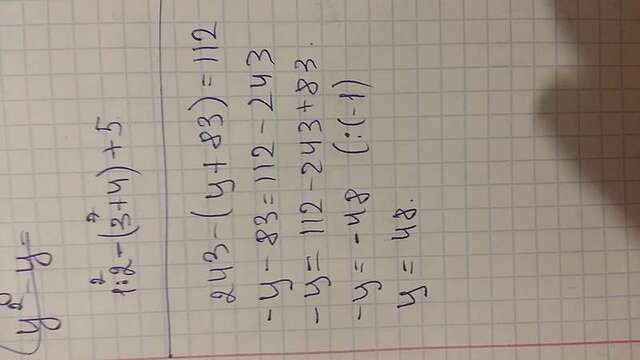 y² - y =
1:2 - (3+4) + 5
243 - (y + 83) = 112
-y - 83 = 112 - 243
-y = 112 - 243 + 83.
-y = -48 (:(-1)
y = 48.